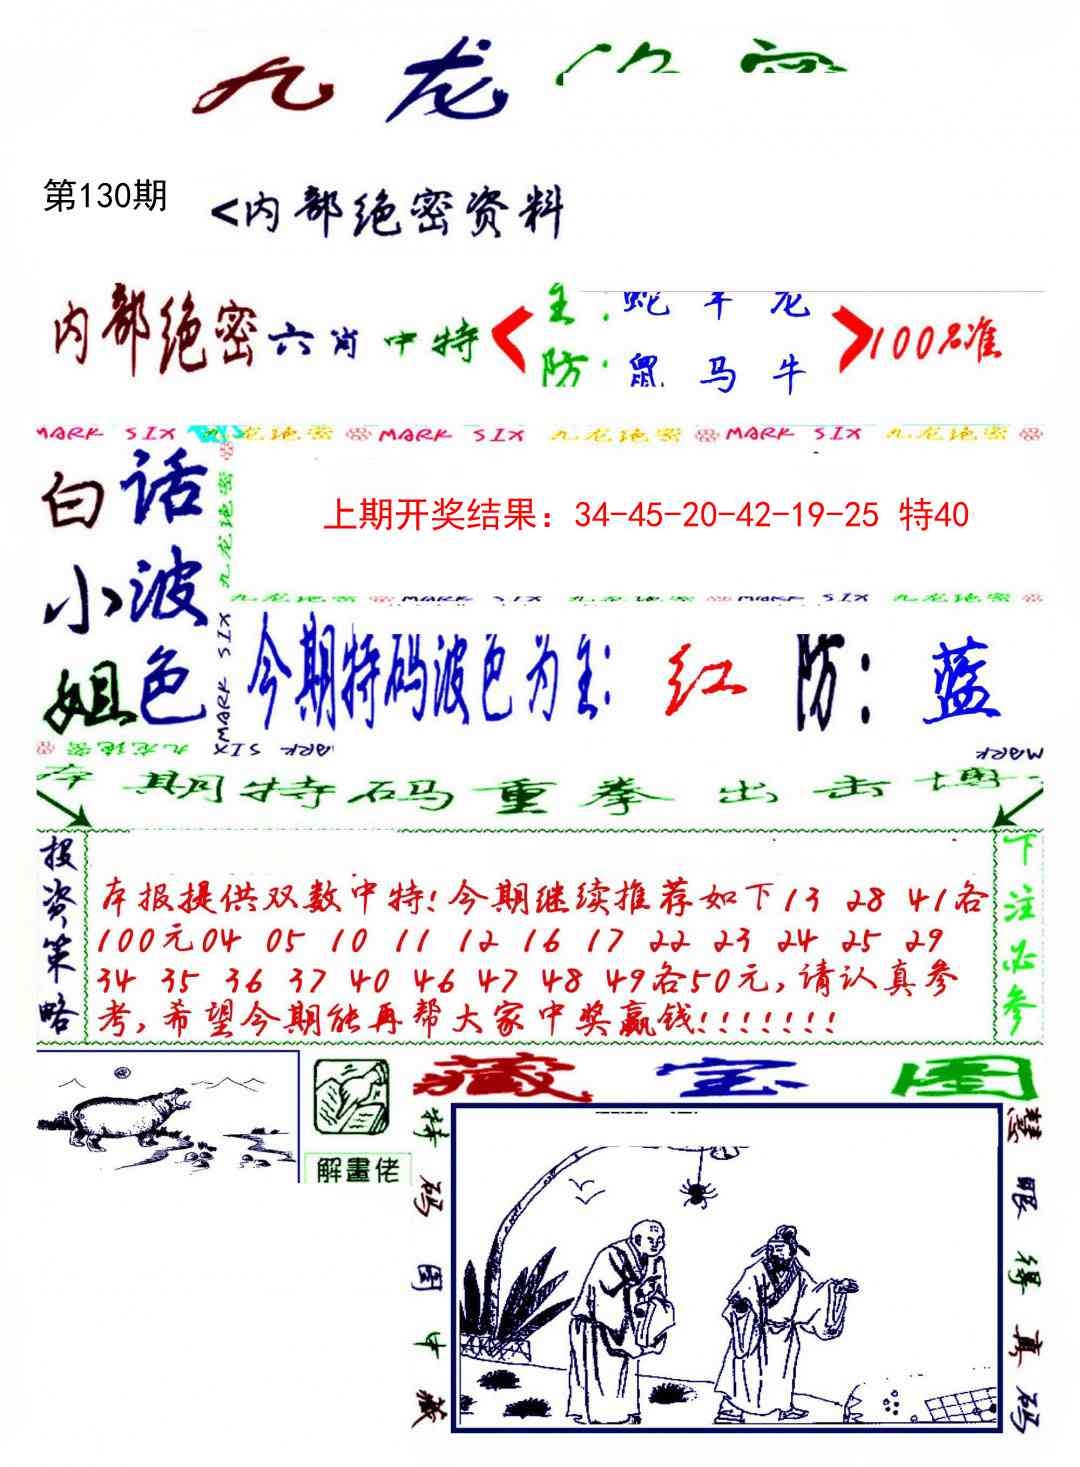 九龙
第130期
<内部绝密资料
内部绝密六肖中特 < 主: 蛇 羊 龙 > 100%准
防: 鼠 马 牛
MARK SIX 九龙绝密 MARK SIX 九龙绝密 MARK SIX 九龙绝密
白话
小波
姐色
九龙绝密
MARK SIX
上期开奖结果：34-45-20-42-19-25 特40
九龙绝密 MARK SIX 九龙绝密 MARK SIX 九龙绝密
今期特码波色为主: 红 防: 蓝
九龙绝密 MARK SIX MARK
本期特码重拳出击博
投资策略
本报提供双数中特!今期继续推荐如下13 28 41各
100元04 05 10 11 12 16 17 22 23 24 25 29
34 35 36 37 40 46 47 48 49各50元,请认真参
考,希望今期能再帮大家中奖赢钱!!!!!!!
下注必参
解畫佬
藏宝图
特码图中藏
慧眼得真码